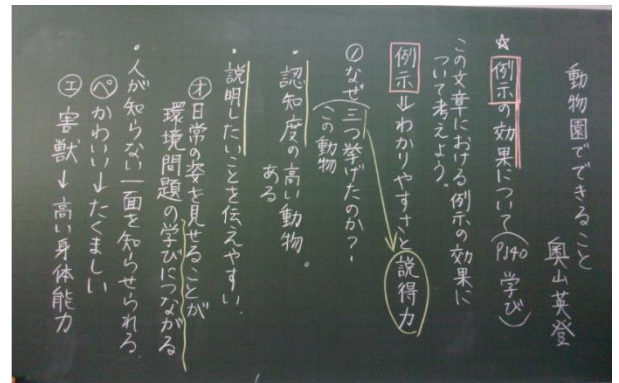 動物園でできること
奥山英登
☆例示の効果について(P140 学び)
この文章における例示の効果に
ついて考えよう。
例示⇒わかりやすさと説得力
①なぜ三つ挙げたのか?
この動物
・認知度の高い動物。
ある
・説明したいことを伝えやすい。
㋔日常の姿を見せることが
環境問題の学びにつながる
・人が知らない一面を知らせられる。
㋬かわいい→たくましい
㋓害獣→高い身体能力